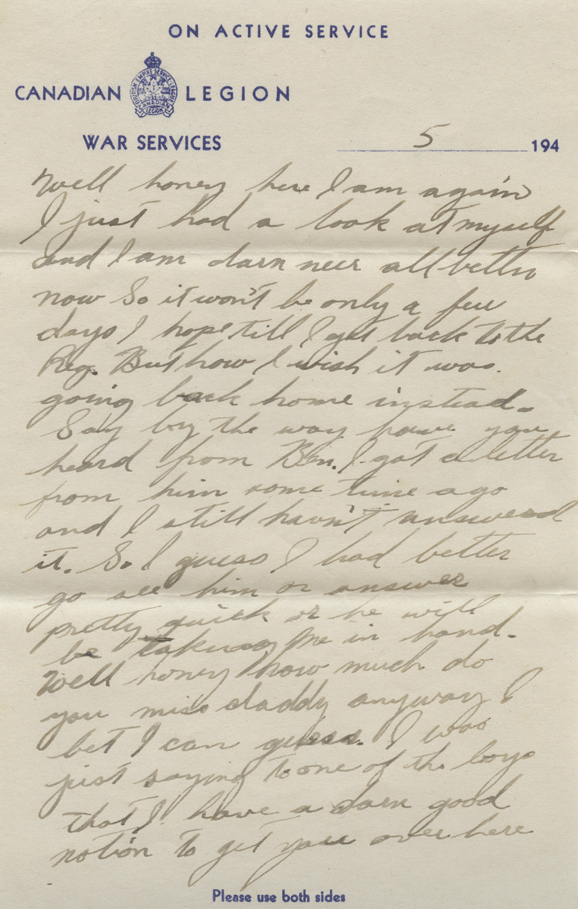 ON ACTIVE SERVICE
CANADIAN LEGION
WAR SERVICES
5 194
Well honey here I am again
I just had a look at myself
and I am darn neer all better
now So it won't be only a few
days I hope till I get back to the
Reg. But how I wish it was.
going back home instead.
Say by the way have you
heard from Ben. I got a letter
from him some time ago
and I still havn't answered
it. So I guess I had better
go see him or answer
pretty quick or he will
be takeing me in hand.
Well honey how much do
you miss daddy anyway I
bet I can guess. I was
just saying to one of the boys
that I have a darn good
notion to get you over here
Please use both sides